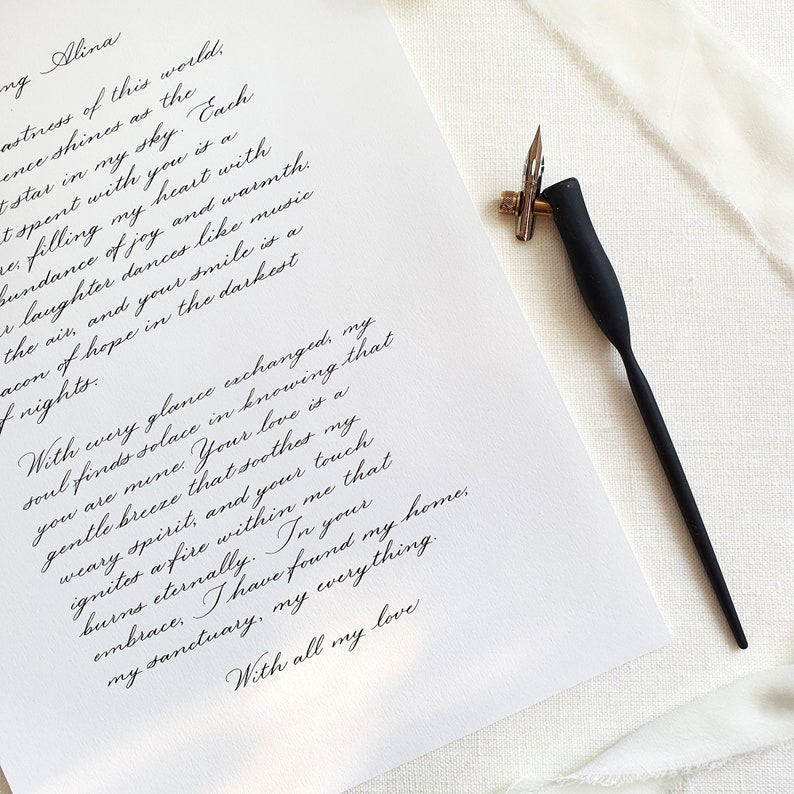 ng Alina
astness of this world,
ence shines as the
t star in my sky. Each
t spent with you is a
re, filling my heart with
bundance of joy and warmth.
r laughter dances like music
the air, and your smile is a
acon of hope in the darkest
f nights.
With every glance exchanged, my
soul finds solace in knowing that
you are mine. Your love is a
gentle breeze that soothes my
weary spirit, and your touch
ignites a fire within me that
burns eternally. In your
embrace, I have found my home,
my sanctuary, my everything.
With all my love